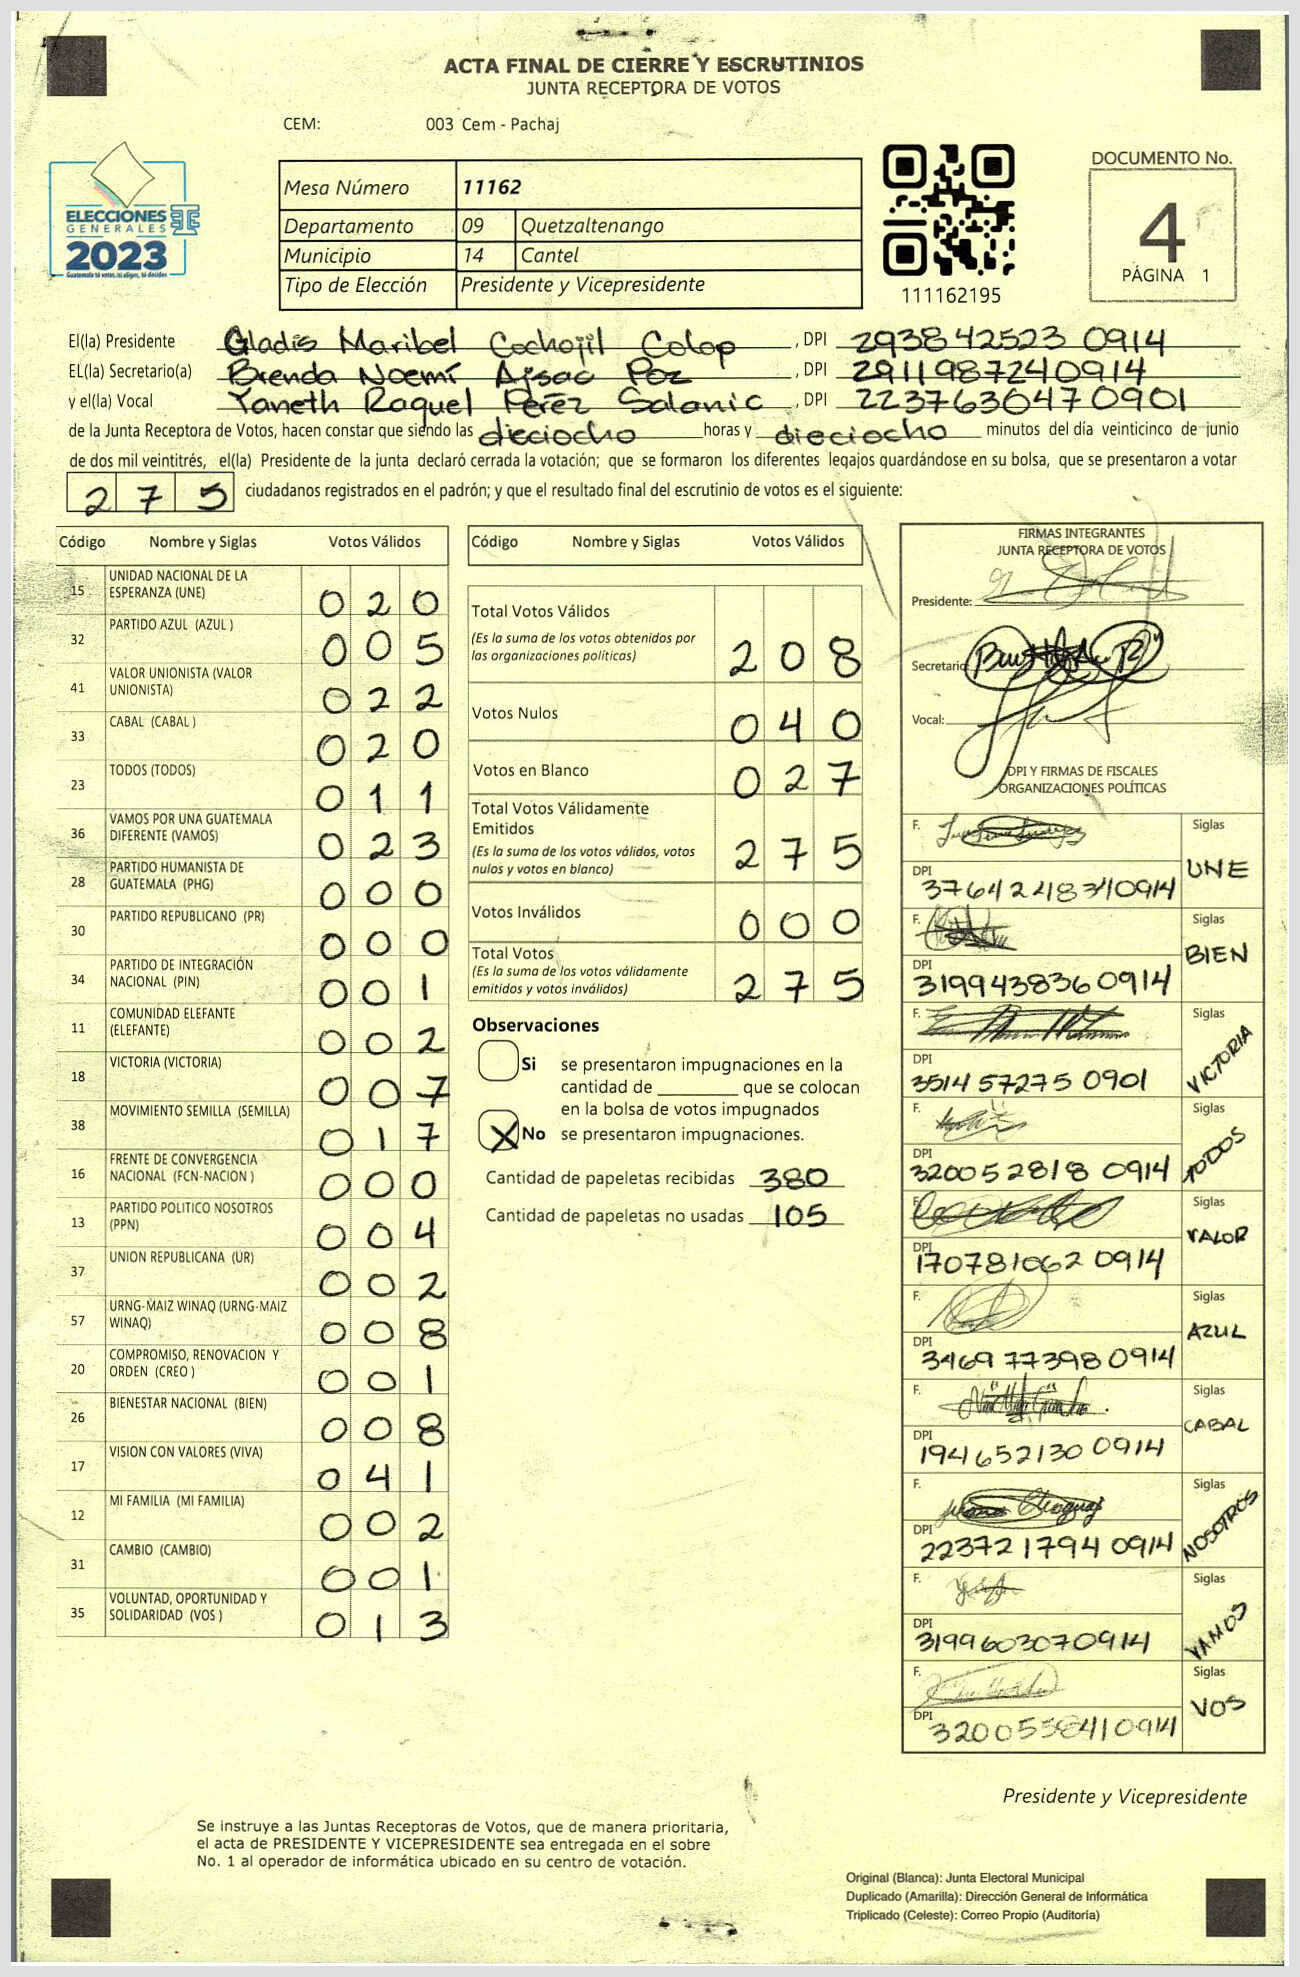 ACTA FINAL DE CIERRE Y ESCRUTINIOS
JUNTA RECEPTORA DE VOTOS
CEM: 003 Cem - Pachaj
ELECCIONES
GENERALES
2023
Guatemala tú votas, tú eliges, tú decides
Mesa Número 11162
Departamento 09 Quetzaltenango
Municipio 14 Cantel
Tipo de Elección Presidente y Vicepresidente
111162195
DOCUMENTO No.
4
PÁGINA 1
El(la) Presidente Gladis Maribel Cochojil Colop , DPI 293842523 0914
EL(la) Secretario(a) Brenda Noemí Ajsac Poz , DPI 2911987240914
y el(la) Vocal Yaneth Raquel Peréz Salanic , DPI 2237630470901
de la Junta Receptora de Votos, hacen constar que siendo las dieciocho horas y dieciocho minutos del día veinticinco de junio
de dos mil veintitrés, el(la) Presidente de la junta declaró cerrada la votación; que se formaron los diferentes legajos guardándose en su bolsa, que se presentaron a votar
275 ciudadanos registrados en el padrón; y que el resultado final del escrutinio de votos es el siguiente:
Código Nombre y Siglas Votos Válidos
15 UNIDAD NACIONAL DE LA ESPERANZA (UNE) 020
32 PARTIDO AZUL (AZUL ) 005
41 VALOR UNIONISTA (VALOR UNIONISTA) 022
33 CABAL (CABAL ) 020
23 TODOS (TODOS) 011
36 VAMOS POR UNA GUATEMALA DIFERENTE (VAMOS) 023
28 PARTIDO HUMANISTA DE GUATEMALA (PHG) 000
30 PARTIDO REPUBLICANO (PR) 000
34 PARTIDO DE INTEGRACIÓN NACIONAL (PIN) 001
11 COMUNIDAD ELEFANTE (ELEFANTE) 002
18 VICTORIA (VICTORIA) 007
38 MOVIMIENTO SEMILLA (SEMILLA) 017
16 FRENTE DE CONVERGENCIA NACIONAL (FCN-NACION ) 000
13 PARTIDO POLITICO NOSOTROS (PPN) 004
37 UNION REPUBLICANA (UR) 002
57 URNG-MAIZ WINAQ (URNG-MAIZ WINAQ) 008
20 COMPROMISO, RENOVACION Y ORDEN (CREO ) 001
26 BIENESTAR NACIONAL (BIEN) 008
17 VISION CON VALORES (VIVA) 041
12 MI FAMILIA (MI FAMILIA) 002
31 CAMBIO (CAMBIO) 001
35 VOLUNTAD, OPORTUNIDAD Y SOLIDARIDAD (VOS ) 013
Código Nombre y Siglas Votos Válidos
Total Votos Válidos 208
(Es la suma de los votos obtenidos por
las organizaciones políticas)
Votos Nulos 040
Votos en Blanco 027
Total Votos Válidamente
Emitidos 275
(Es la suma de los votos válidos, votos
nulos y votos en blanco)
Votos Inválidos 000
Total Votos 275
(Es la suma de los votos válidamente
emitidos y votos inválidos)
Observaciones
Si se presentaron impugnaciones en la
cantidad de ________ que se colocan
en la bolsa de votos impugnados
X No se presentaron impugnaciones.
Cantidad de papeletas recibidas 380
Cantidad de papeletas no usadas 105
FIRMAS INTEGRANTES
JUNTA RECEPTORA DE VOTOS
Presidente:
Secretario
Vocal:
DPI Y FIRMAS DE FISCALES
ORGANIZACIONES POLÍTICAS
F. Siglas UNE
DPI 3764248340914
F. Siglas BIEN
DPI 319943836 0914
F. Siglas VICTORIA
DPI 351457275 0901
F. Siglas TODOS
DPI 320052818 0914
F. Siglas VALOR
DPI 170781062 0914
F. Siglas AZUL
DPI 346977398 0914
F. Siglas CABAL
DPI 194652130 0914
F. Siglas NOSOTROS
DPI 223721794 0914
F. Siglas VAMOS
DPI 3199603070914
F. Siglas VOS
DPI 3200558410914
Presidente y Vicepresidente
Se instruye a las Juntas Receptoras de Votos, que de manera prioritaria,
el acta de PRESIDENTE Y VICEPRESIDENTE sea entregada en el sobre
No. 1 al operador de informática ubicado en su centro de votación.
Original (Blanca): Junta Electoral Municipal
Duplicado (Amarilla): Dirección General de Informática
Triplicado (Celeste): Correo Propio (Auditoría)